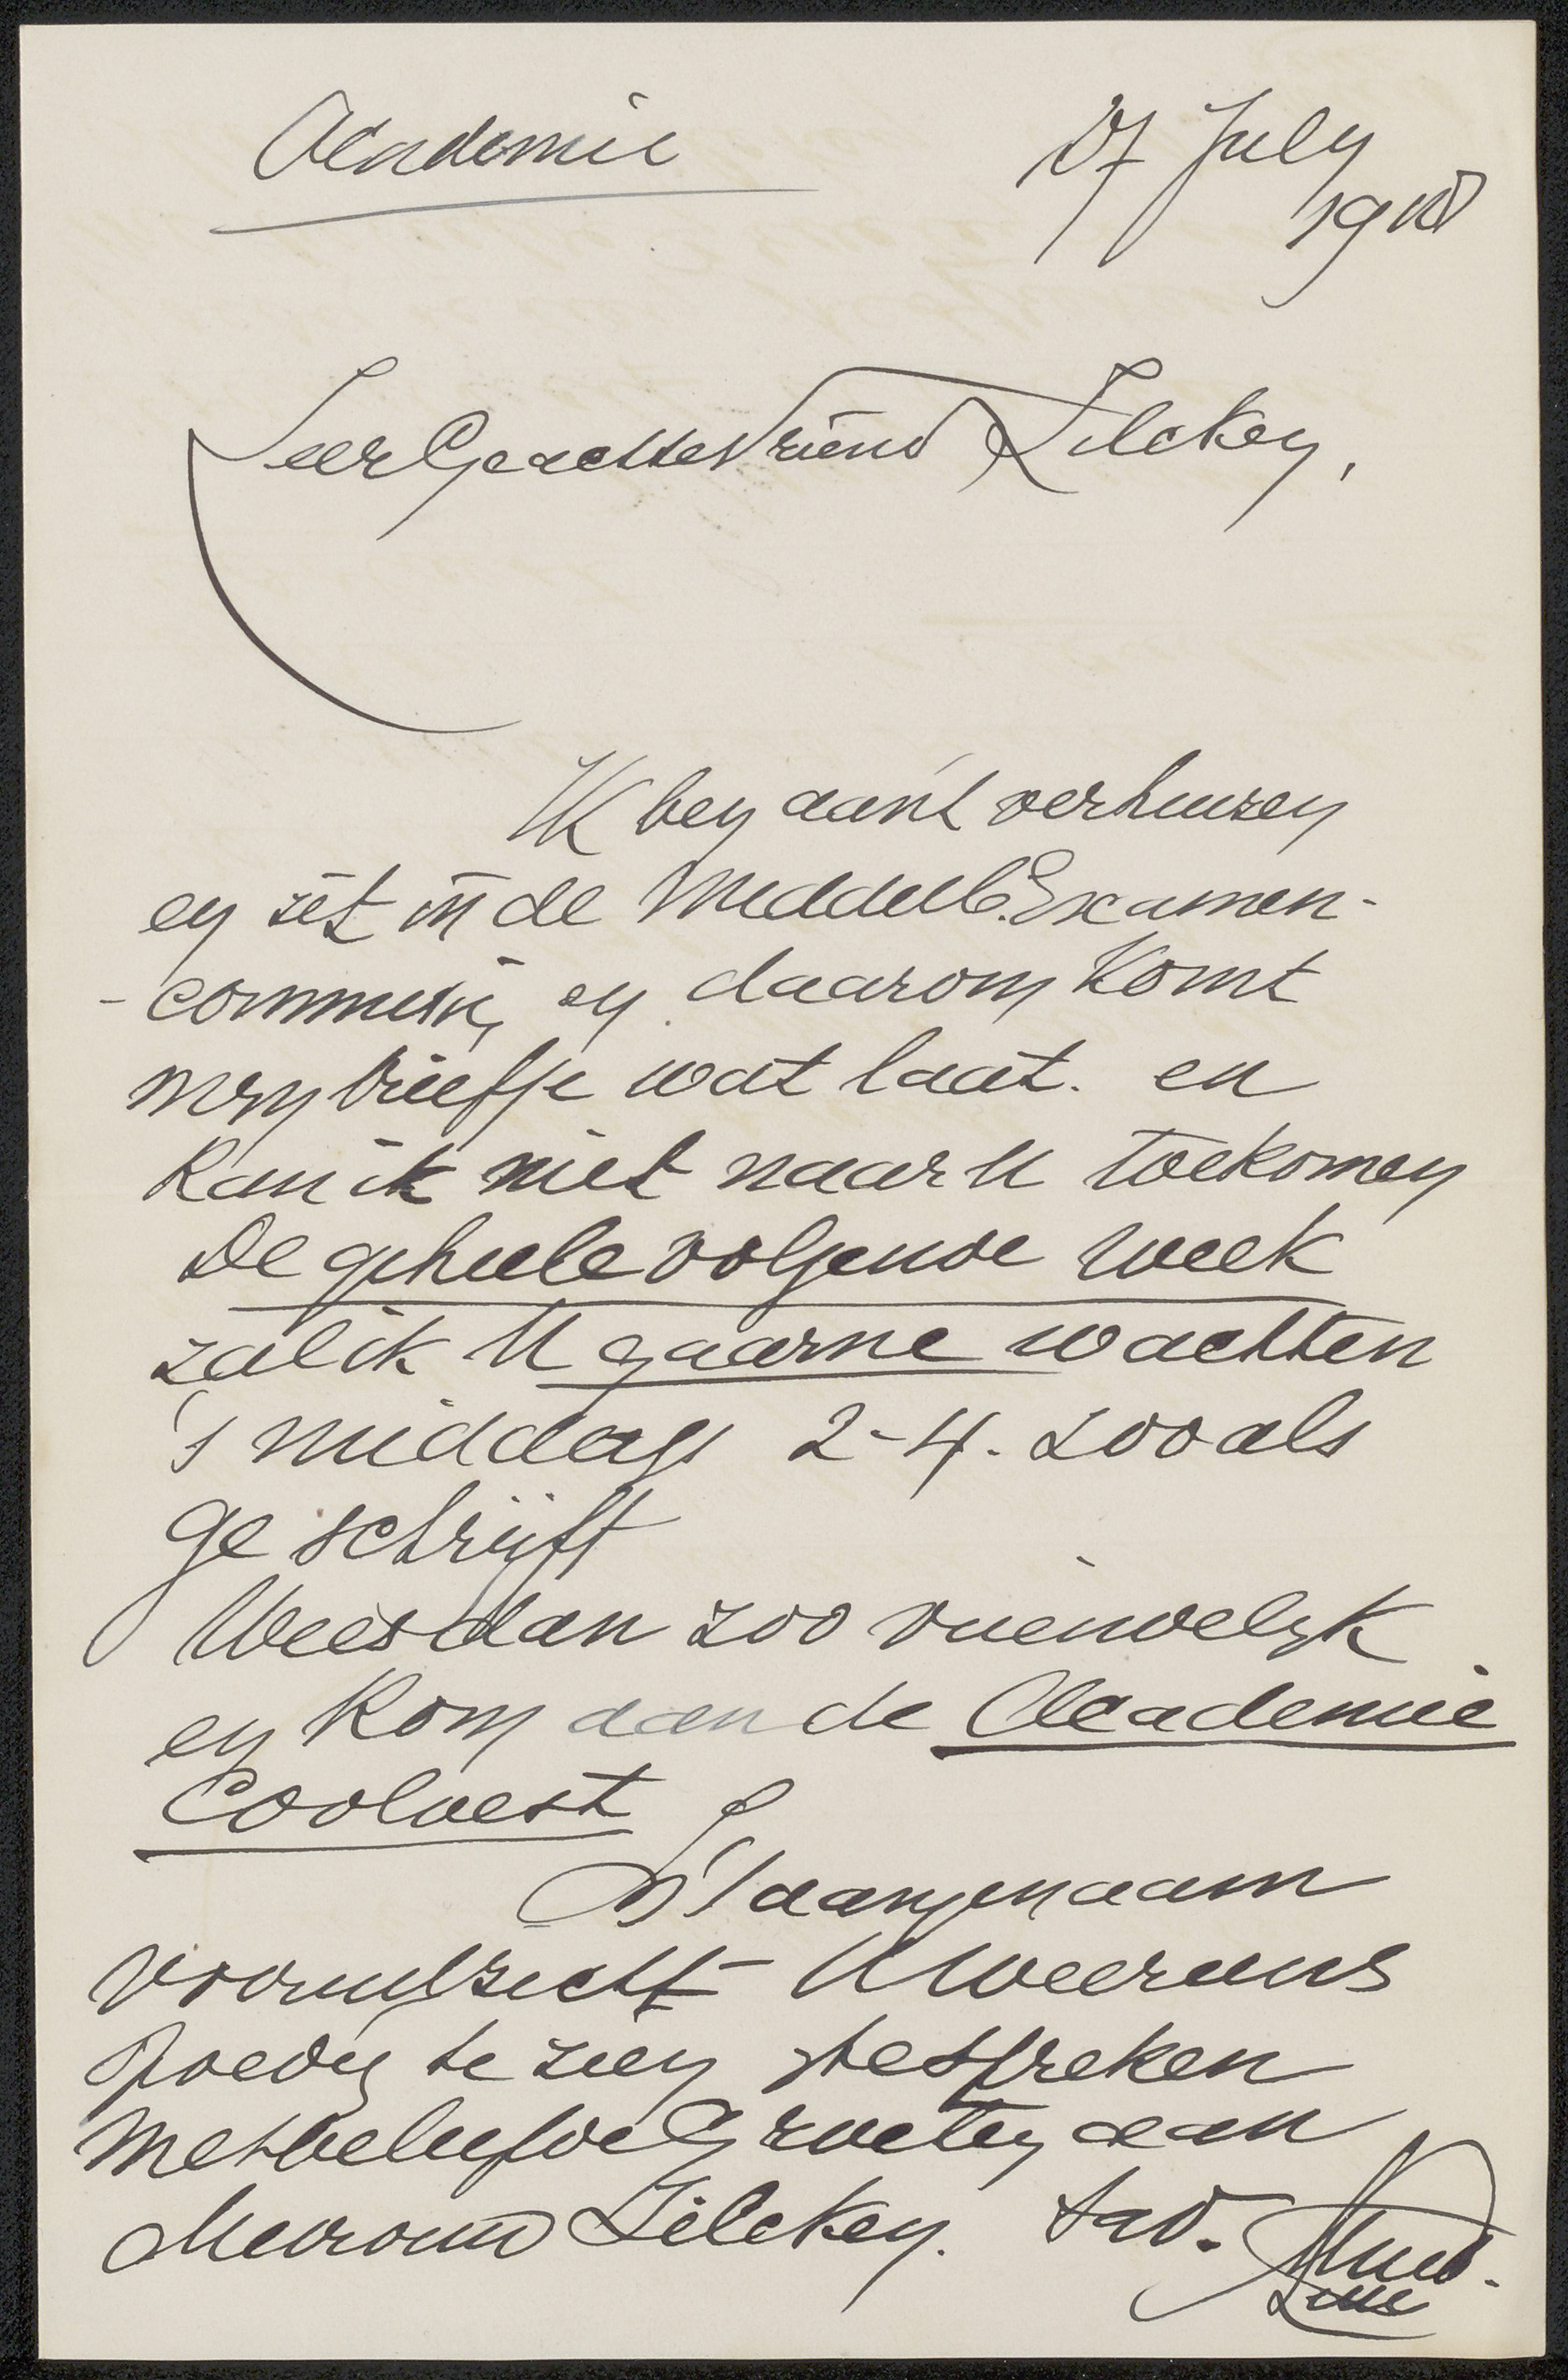 Academie 27 July
1918
Zeer Geachte Vriend Zilcken,
Ik ben aan't verhuizen
en zit in de Middelb. Examen-
-commissie, en daarom komt
mijn briefje wat laat. en
kan ik niet naar U toekomen
De geheele volgende week
zal ik U gaarne wachten
's middags 2-4. zooals
ge schrijft
Wees dan zoo vriendelijk
en kom aan de Academie
Coolvest
In't aangenaam
vooruitzicht U weer eens
spoedig te zien, te spreken
met beleefde Groeten aan
Mevrouw Zilcken. tav.